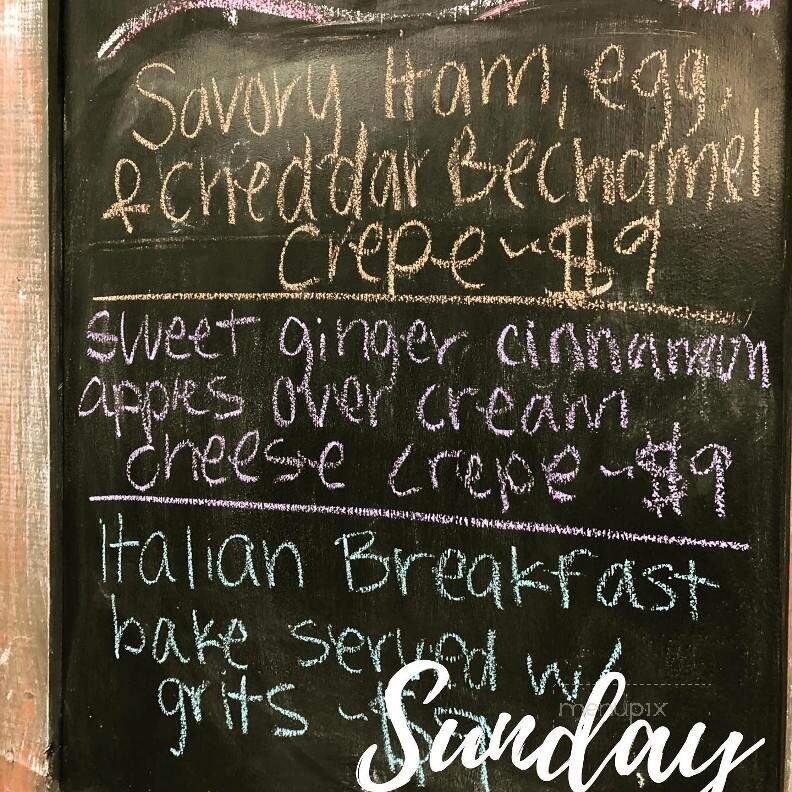 Savory Ham, egg,
& cheddar Bechamel
crepe ~ $9
sweet ginger cinnamon
apples over cream
cheese crepe ~ $9
Italian Breakfast
bake served w/
grits ~ $9
Sunday
menupix